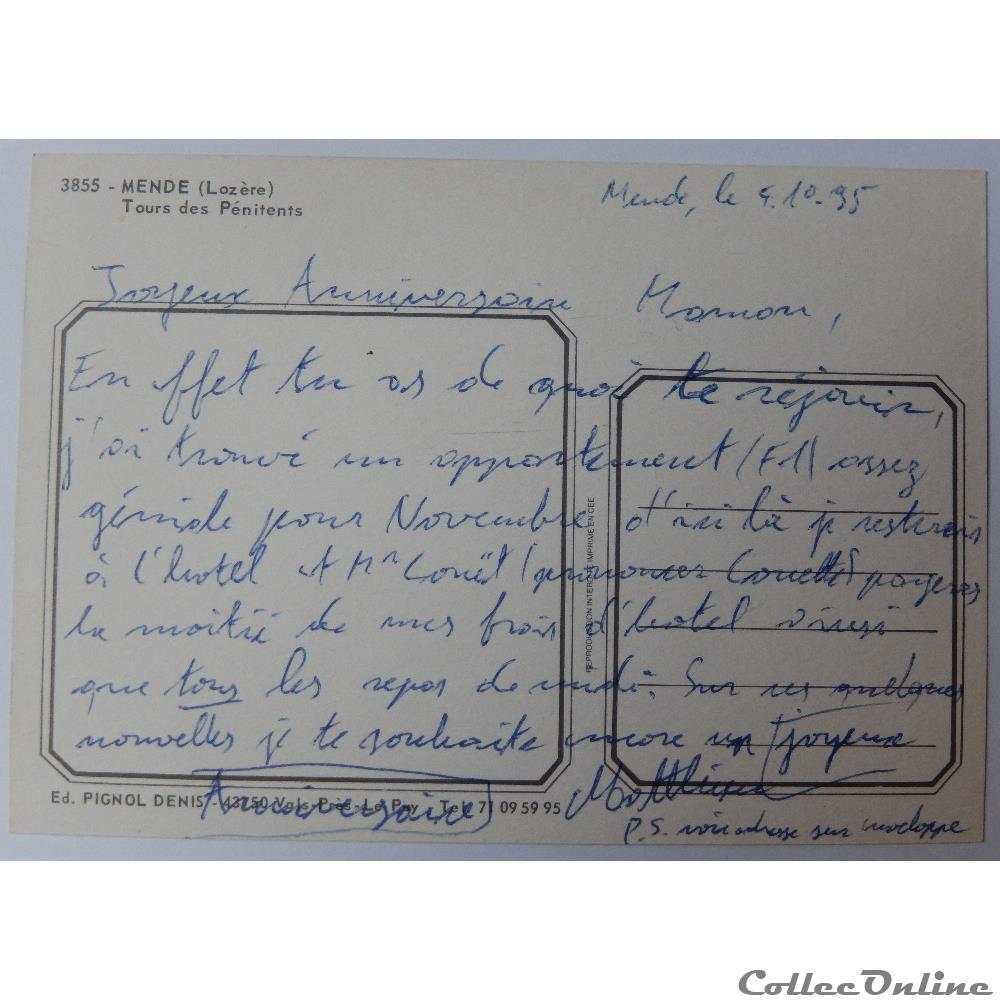 3855 - MENDE (Lozère)
Tours des Pénitents
Mende, le 4.10.95
Joyeux Anniversaire Maman,
En effet tu as de quoi te réjouir,
j'ai trouvé un appartement (F1) assez
géniale pour Novembre d'ici là je resterais
à l'hotel et Mr Couët (prononcer Couette) payeras
la moitié de mes frais d'hotel ainsi
que tous les repas de midi. Sur ces quelques
nouvelles je te souhaite encore un joyeux
Anniversaire
Matthieu
P.S. voir adresse sur enveloppe
Ed. PIGNOL DENIS - 43750 Vals-Près-Le Puy - Tel. 71 09 59 95
REPRODUCTION INTERDITE IMPRIMÉ EN CEE
CollecOnline